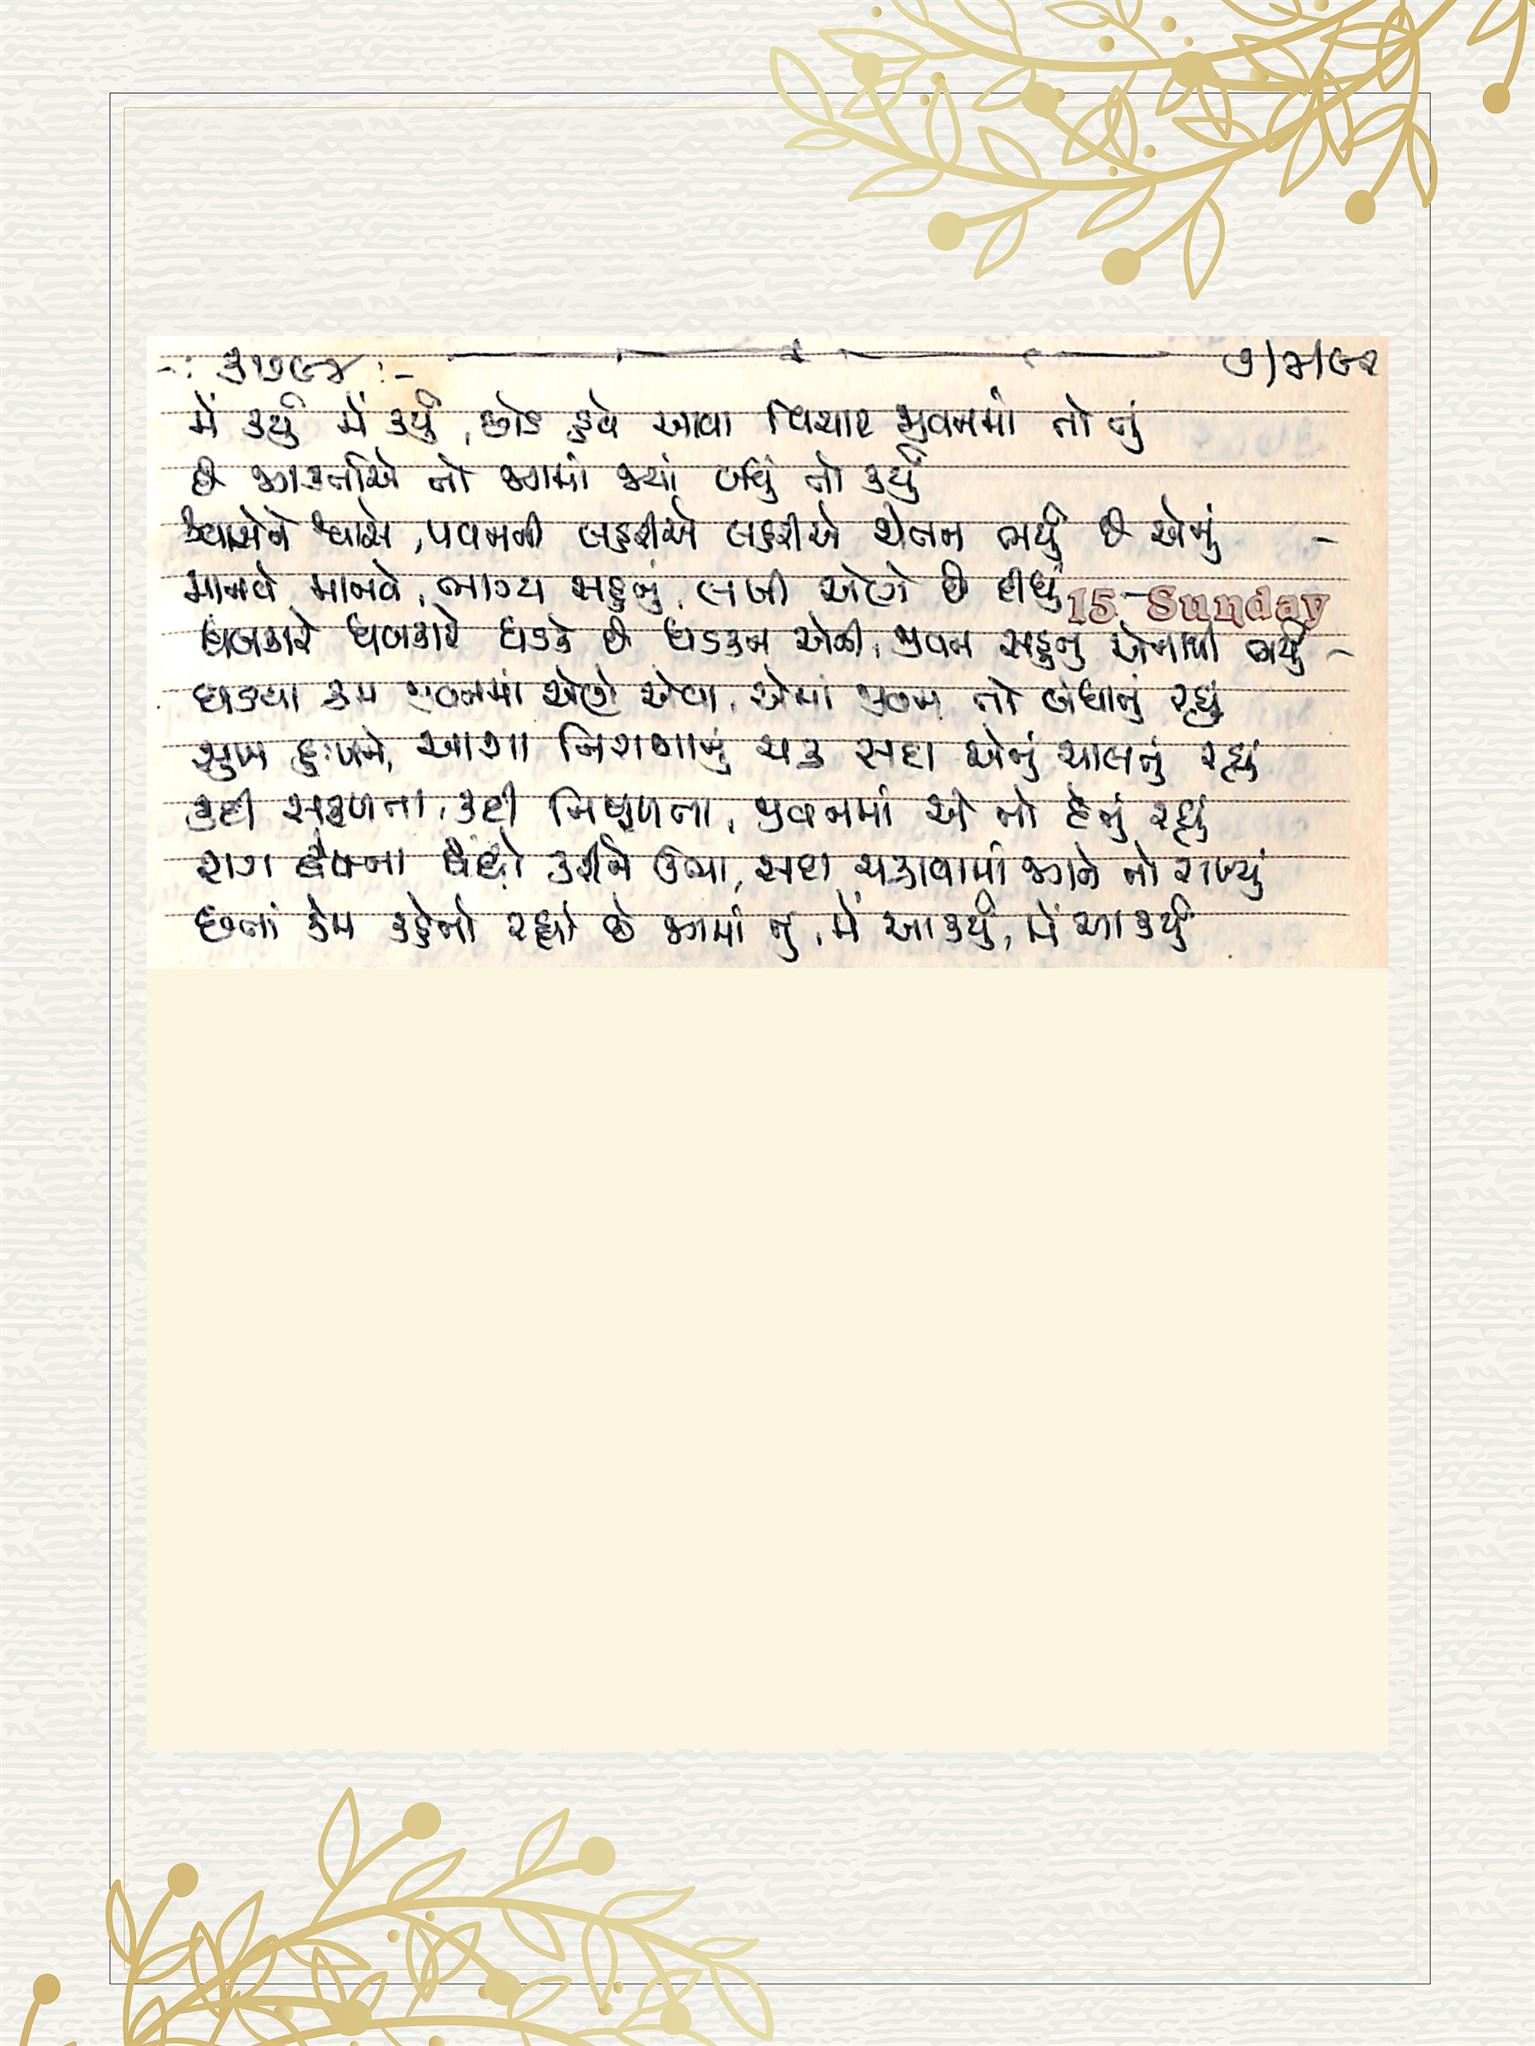 -: ૩૧૭૯૪ :- ૭/૪/૯૨
મેં કર્યું મેં કર્યું, છોડ હવે આવા વિચાર જીવનમાં તો તું
છે જગકર્તાએ તો જગમાં જ્યાં બધું તો કર્યું
શ્વાસેને શ્વાસે, પવનની લહરીએ લહરીએ ચેતન ભર્યું છે એનું -
માનવે માનવે, ભાગ્ય સહુનું, લખી એણે છે દીધું -
15 Sunday
ધબકારે ધબકારે ધડકે છે ધડકન એની, જીવન સહુનુ એનાથી ભર્યું -
ઘડયા ક્રમ જીવનમાં એણે એવા, એમાં જીવન તો બંધાતું રહ્યું
સુખ દુઃખને, આશા નિરાશાનું ચક્ર સદા એનું ચાલતું રહ્યું
કદી સફળતા, કદી નિષ્ફળતા, જીવનમાં એ તો દેતું રહ્યું
રાગ દ્વેષના કરીને ઊભા, સદા ચકાવામાં જગને તો રાખ્યું
છતાં કેમ કહેતો રહ્યો છે જગમાં તુ, મેં આ કર્યું, મેં આ કર્યું